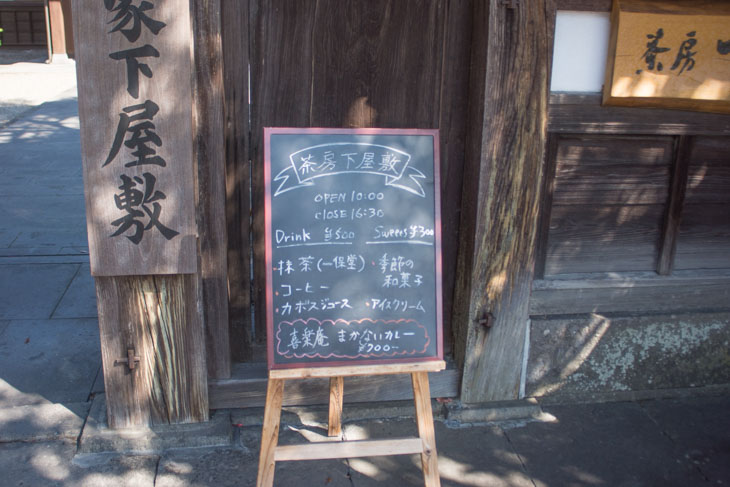 家下屋敷
茶房
茶房下屋敷
OPEN 10:00
CLOSE 16:30
Drink ¥500
Sweets ¥300
・抹茶(一保堂)
・コーヒー
・カボスジュース
・季節の
和菓子
・アイスクリーム
喜楽庵 まかないカレー
¥900-